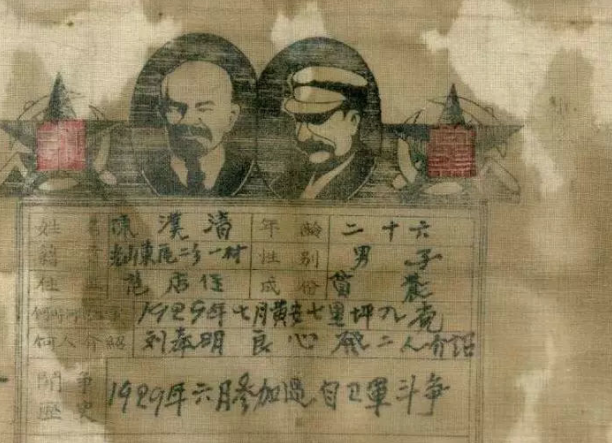 姓名 陳漢清 年齡 二十六
籍 東 二 一村 性別 男子
住 店住 成份 貧農
何時何 1929年七月黄安七里坪入党
何人介紹 刘奉明 良心 二人介绍
鬪爭歷史 1929年六月参加過自卫軍斗争